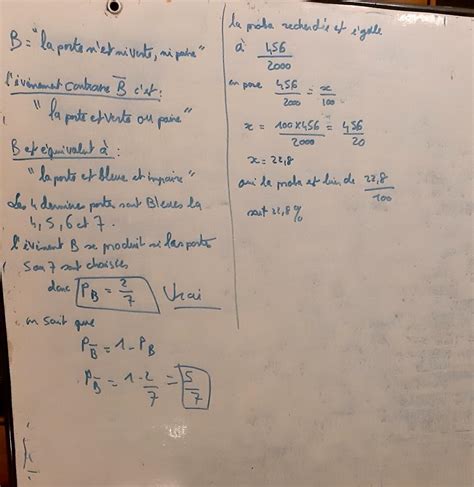 B = "la porte n'est ni verte, ni paire"
l'évènement contraire B̅ c'est :
"la porte est verte ou paire"
B est équivalent à :
"la porte est bleue et impaire"
Les 4 dernière porte sont Bleues la
4, 5, 6 et 7.
l'évènement B se produit si les porte
5 ou 7 sont choisies
donc P_B = 2/7 Vrai
on sait que
P_B̅ = 1 - P_B
P_B̅ = 1 - 2/7 = 5/7
la proba recherchée est égale
à 456/2000
on pose 456/2000 = x/100
x = 100×456/2000 = 456/20
x = 22,8
la proba est bien de 22,8/100
soit 22,8 %